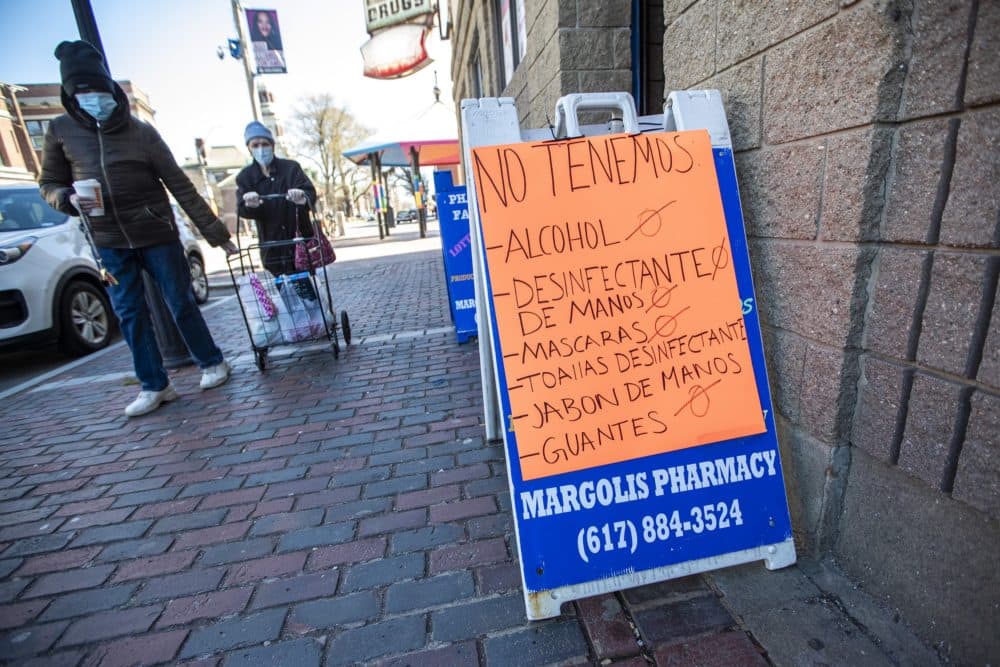 DRUGS
NO TENEMOS
-ALCOHOL
-DESINFECTANTE
DE MANOS
-MASCARAS
-TOAIIAS DESINFECTANTE
-JABON DE MANOS
-GUANTES
MARGOLIS PHARMACY
(617) 884-3524